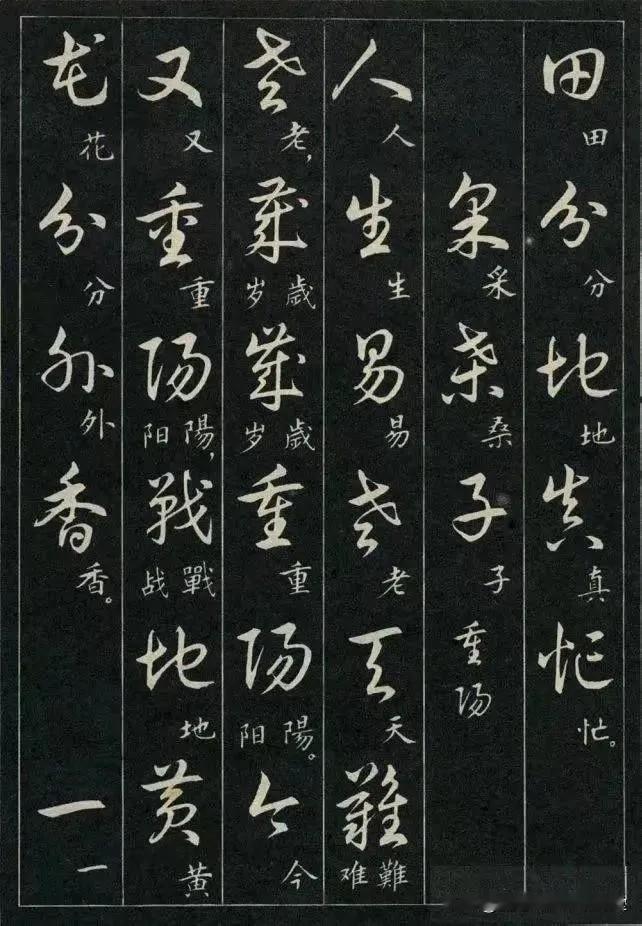 田分地真忙
田分地真忙。
采桑子 重陽
采桑子
人生易老天難
人生易老天难難
老歲歲重陽今
老,岁歲岁歲重阳陽。今
又重陽戰地黄
又重阳陽,战戰地黄
花分外香 一
花分外香。一